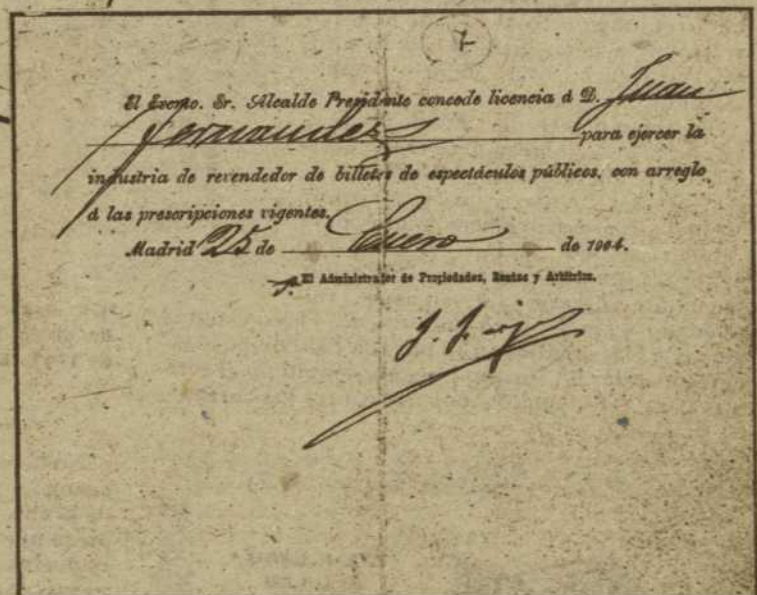 7
El Excmo. Sr. Alcalde Presidente concede licencia á D. Juan
Fernandez para ejercer la
industria de revendedor de billetes de espectáculos públicos, con arreglo
á las prescripciones vigentes.
Madrid 25 de Enero de 1904.
El Administrador de Propiedades, Rentas y Arbitrios.